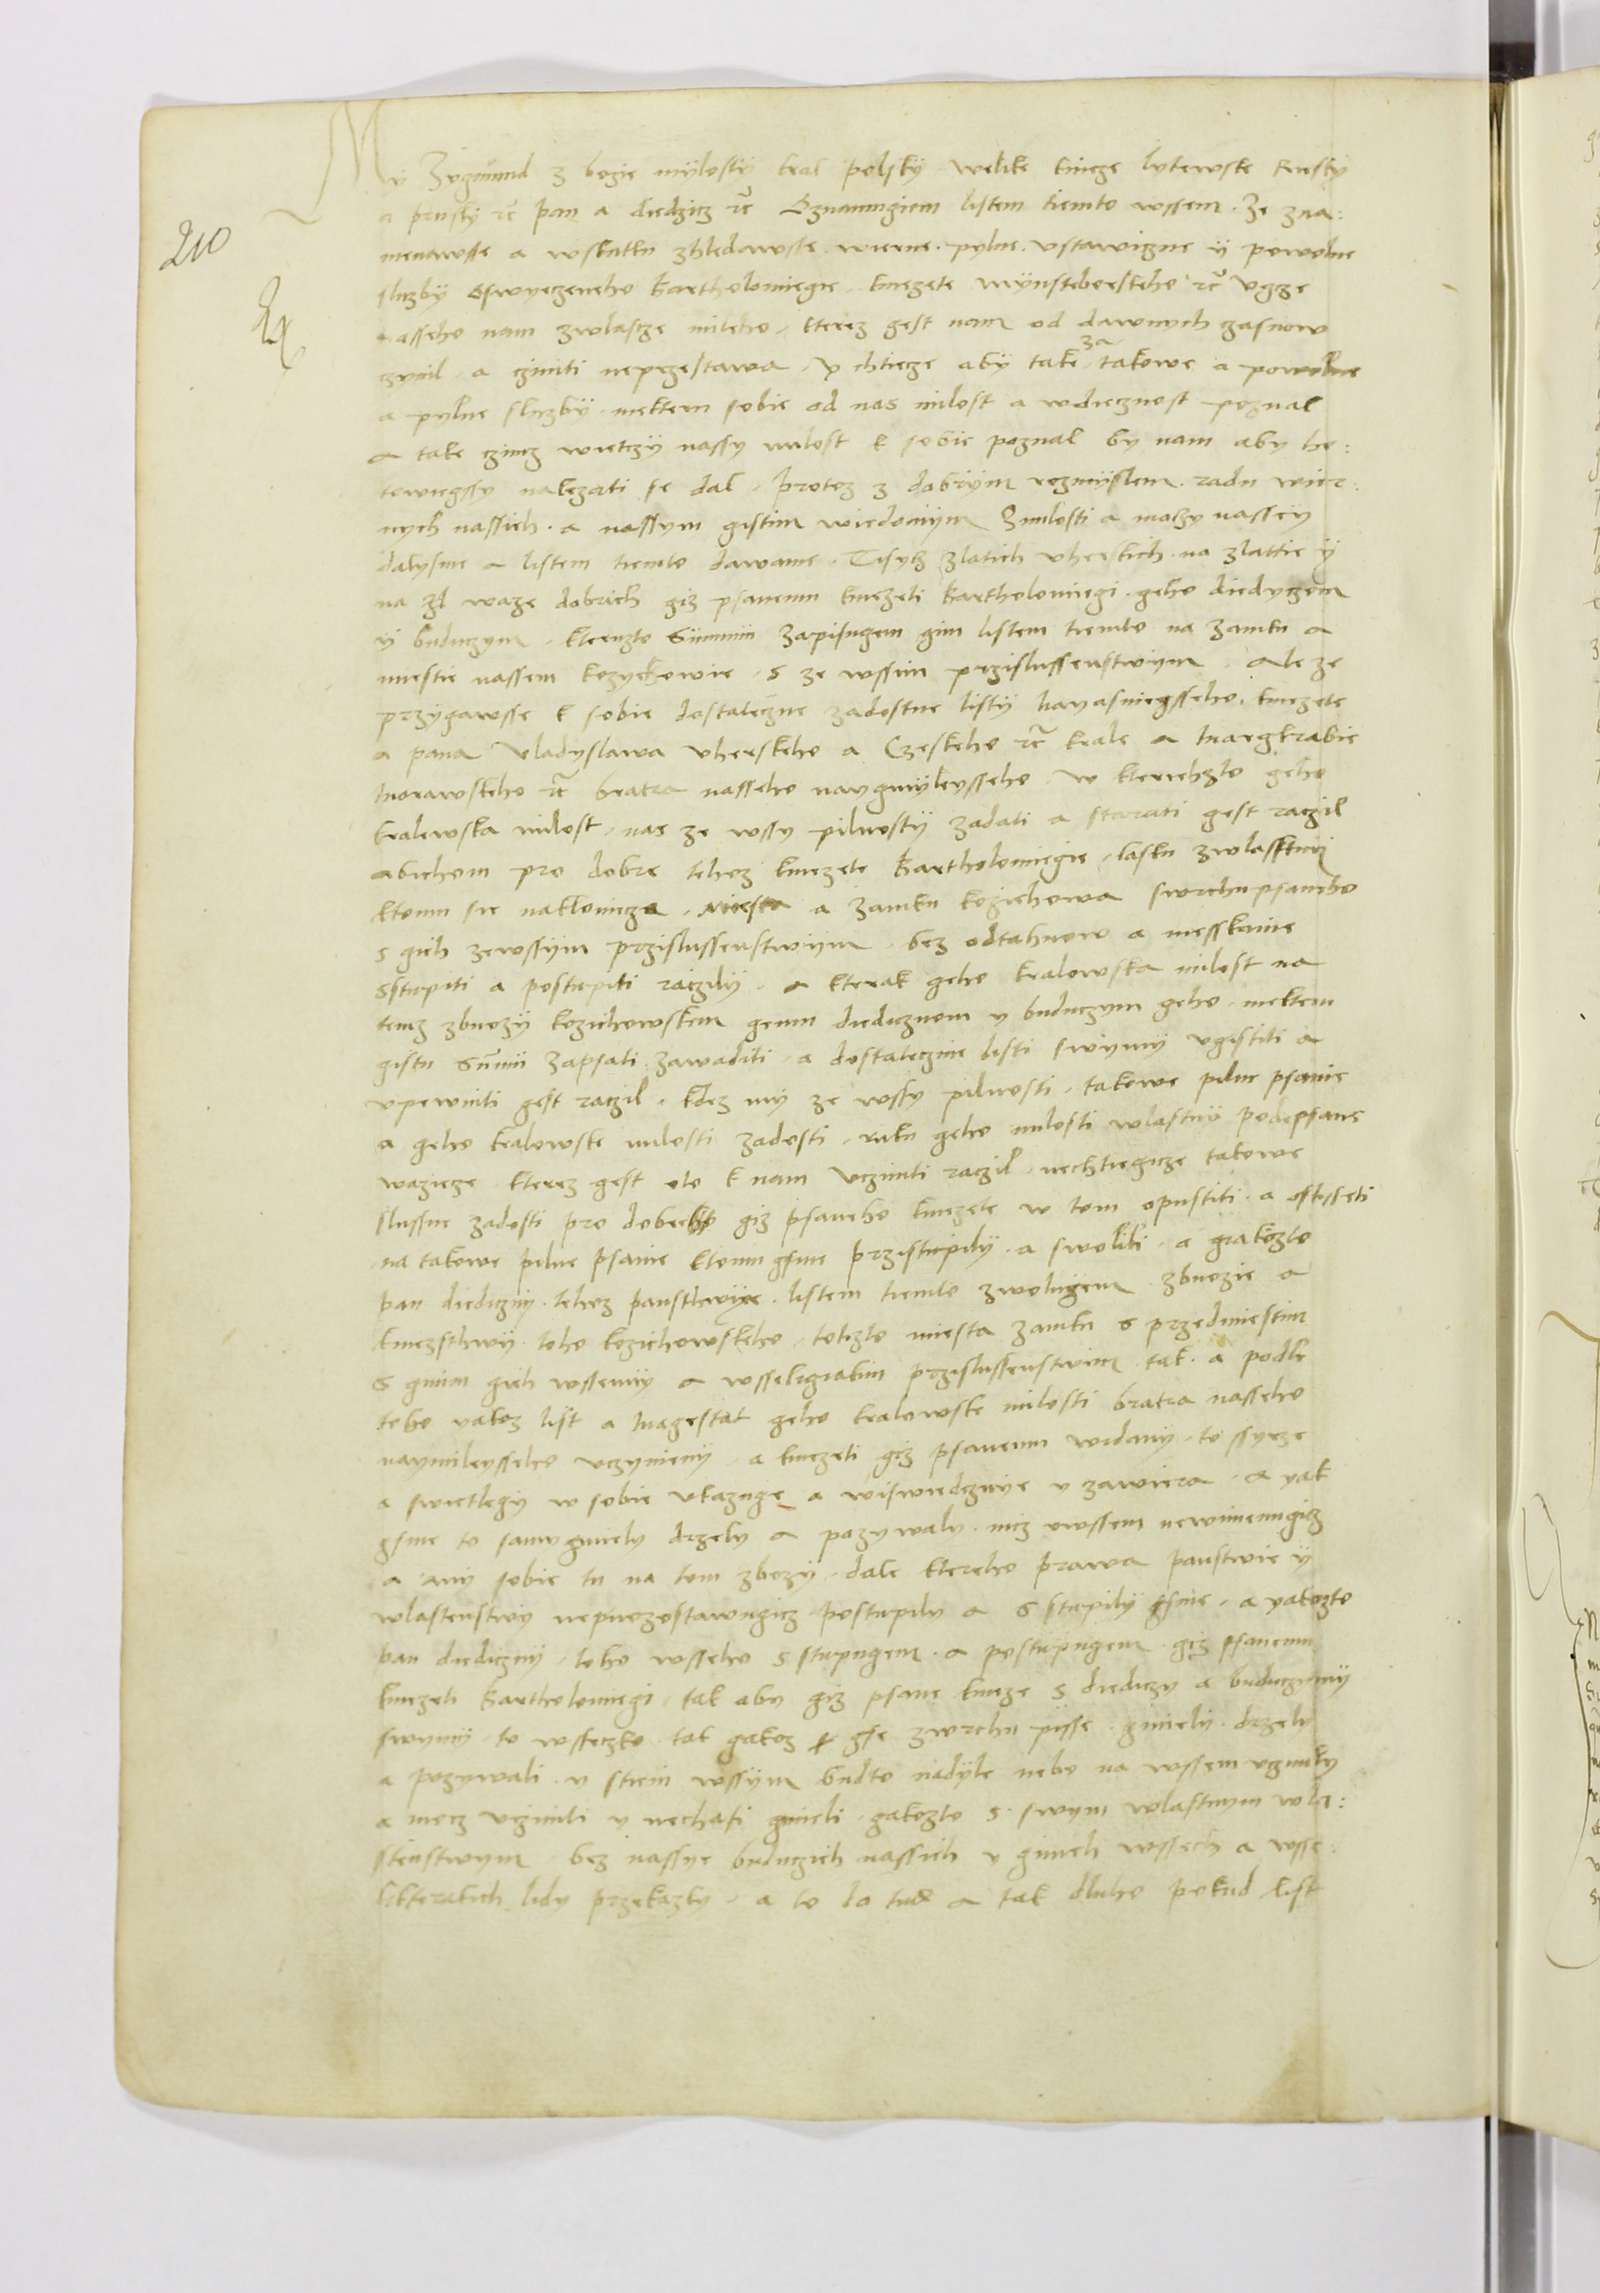 My Zygmund z bozie mylosty kral polsky welike knieze lytewske Rusky
a prusky rc pan a diedzicz rc Oznamugiem listem tiemto wssem. Ze zna:
menawsse a wskutku zhledawsse. wierne. pylne. ustawizne y powolne
sluzby Oswyeczeneho Bartholomiegie. kniezete Mynsterberskeho rc Ugcze
nasseho nam zwlastze mileho. kterez gest nam od dawnych czasuow
czynil. a cziniti neprzestawa. y chtiecze aby take za takowe a powolne
a pylne sluzby. niektem sobie od nas milost a wdiecznost poznal
a take czincz wietczy nassy milost k sobie poznal by nam aby ho:
towiegssy nalezati se dal. protoz z dobrym rozmyslem. radu wier:
nych nassich. a nassym gistim wiedomym Zmilosti a moczy nassey
dalysme a listem tiemto dawame. Tisycz zlatich uherskich. na zlattie y
na zl waze dobrich giz psanemu kniezeti Bartholomiegi. geho diedyczom
y buduczym. kteruzto Summu zapisugem gim listem tiemto na zamku a
miestie nassem kozychowie. s ze wssim przislussenstwym. Ale ze
przygawsse k sobie dostateczne zadostne listy nayasniegsseho. kniezete
a pana Vladyslawa uherskeho a Czeskeho rc krale a Margkrabie
Morawskeho rc bratra nasseho naygmyleyssseho. w kterichzto geho
kralowska milost. nas ze wssy pilnosty zadati a starati gest raczil
abichom pro dobre tehoz kniezete Bartholomiegie. lasku zwlasstny
ktomu sie naklonicze. Miesta a zamku kozichowa swrchupsaneho
s gich zewssym przislussenstwym. bez odtahuow a messkanie
sstupiti a postupiti raczily. a kterak geho kralowska milost na
temz zbozy kozichowskem gemu diedicznom y buduczym geho. niektem
gistu Summu zapsati. zawaditi. a dostateczne listi swymy ugistiti a
upewniti gest raczil. kdez my ze wssy pilnosti. takowe pilne psanie
a geho kralowske milosti zadosti. ruku geho milosti wlastnu podepsane
waziecze kterez gest oto k nam ucziniti raczil. nechtiegicze takowe
slussne zadosti pro dobreho giz psaneho kniezete w tom opustiti. a oslisseti
na takowe pilne psanie ktomu gsme przistupily. a swolili. a gakozto
pan diediczny. tehoz panstwye. listem tiemto zwolugem. zbozie a
kniezstwy toho kozichowskeho. totizto miesta zamku s przedmiestim
s gmim gich wssemy a wsseligiakim przislussenstwim. tak. a podle
toho yakoz list a Magestat geho kralowske milosti bratra nasseho
naymileysseho uczynieny. a kniezeti giz psanemu widany. to ssyrze
a swietlegy w sobie ukazuge a wiswiedcznye y zawiera. a yak
gsme to samy gmiely drzely a pozywaly. nicz owssem newimienugicz
a any sobie tu na tom zbozy. dale ktereho prawa panstwie y
wlastenstwy nepuozostawugicz postupily a s stupily gsme. a yakozto
pan diediczny. toho wsseho s stupugem. a postupugem. giz psanemu
kniezeti Bartholomiegi. tak aby giz psane knieze s diediczy a buduczimy
swymy. to wsseczko. tak gakoz se gse zwrchu pisse. gmiely. drzely
a pozywali. y stiem wssym budto nadyle nebo na wssem ugmuky
a niecz uczinili y nechati gmieli. gakozto s. swym wlastnym wla:
stenstwym. bez nassye buduczich nassich y ginych wssech a wsse:
likterakich lidy przekazky. a to do tud a tak dluho pokud list
210